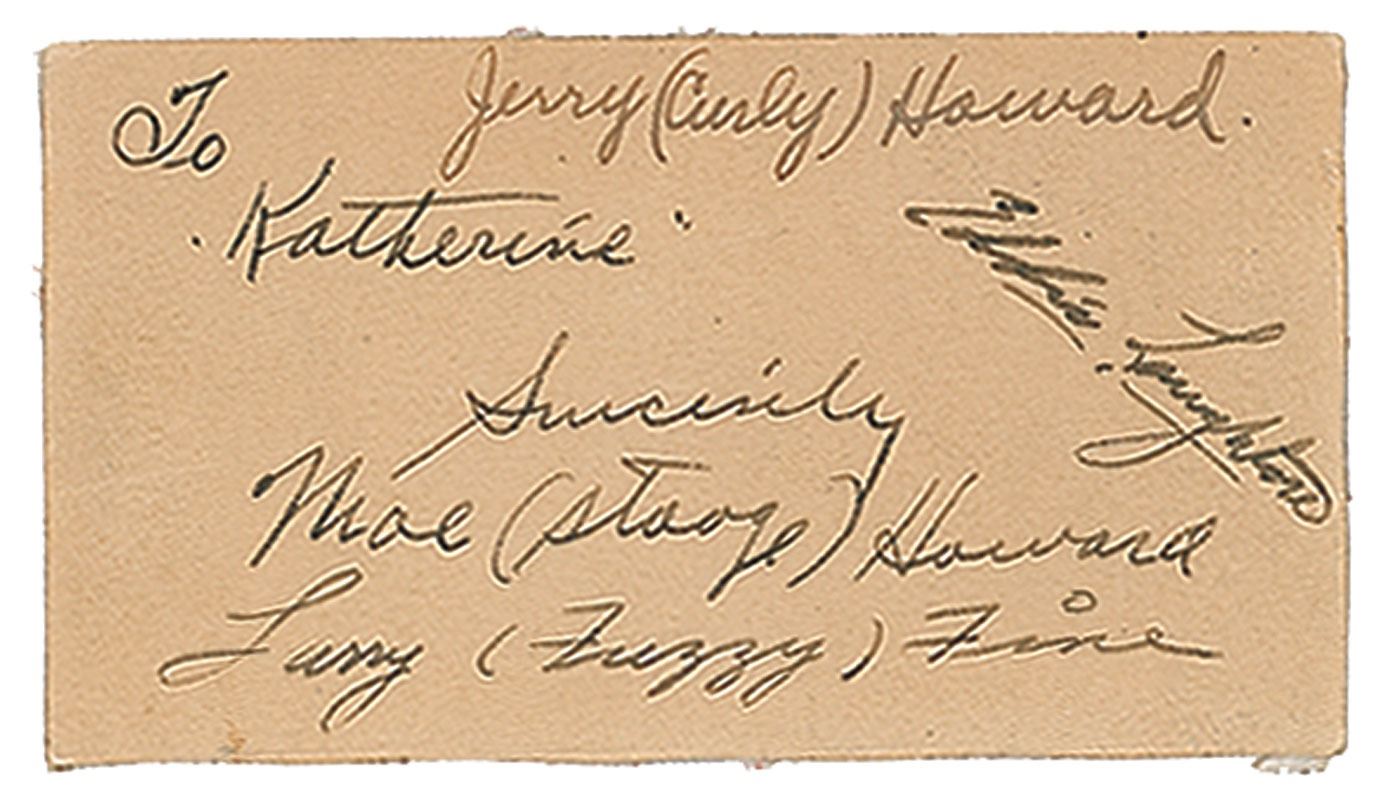 To
Jerry (Curly) Howard.
"Katherine"
Eddie Laughton
Sincerely
Moe (Stooge) Howard
Larry (Fuzzy) Fine